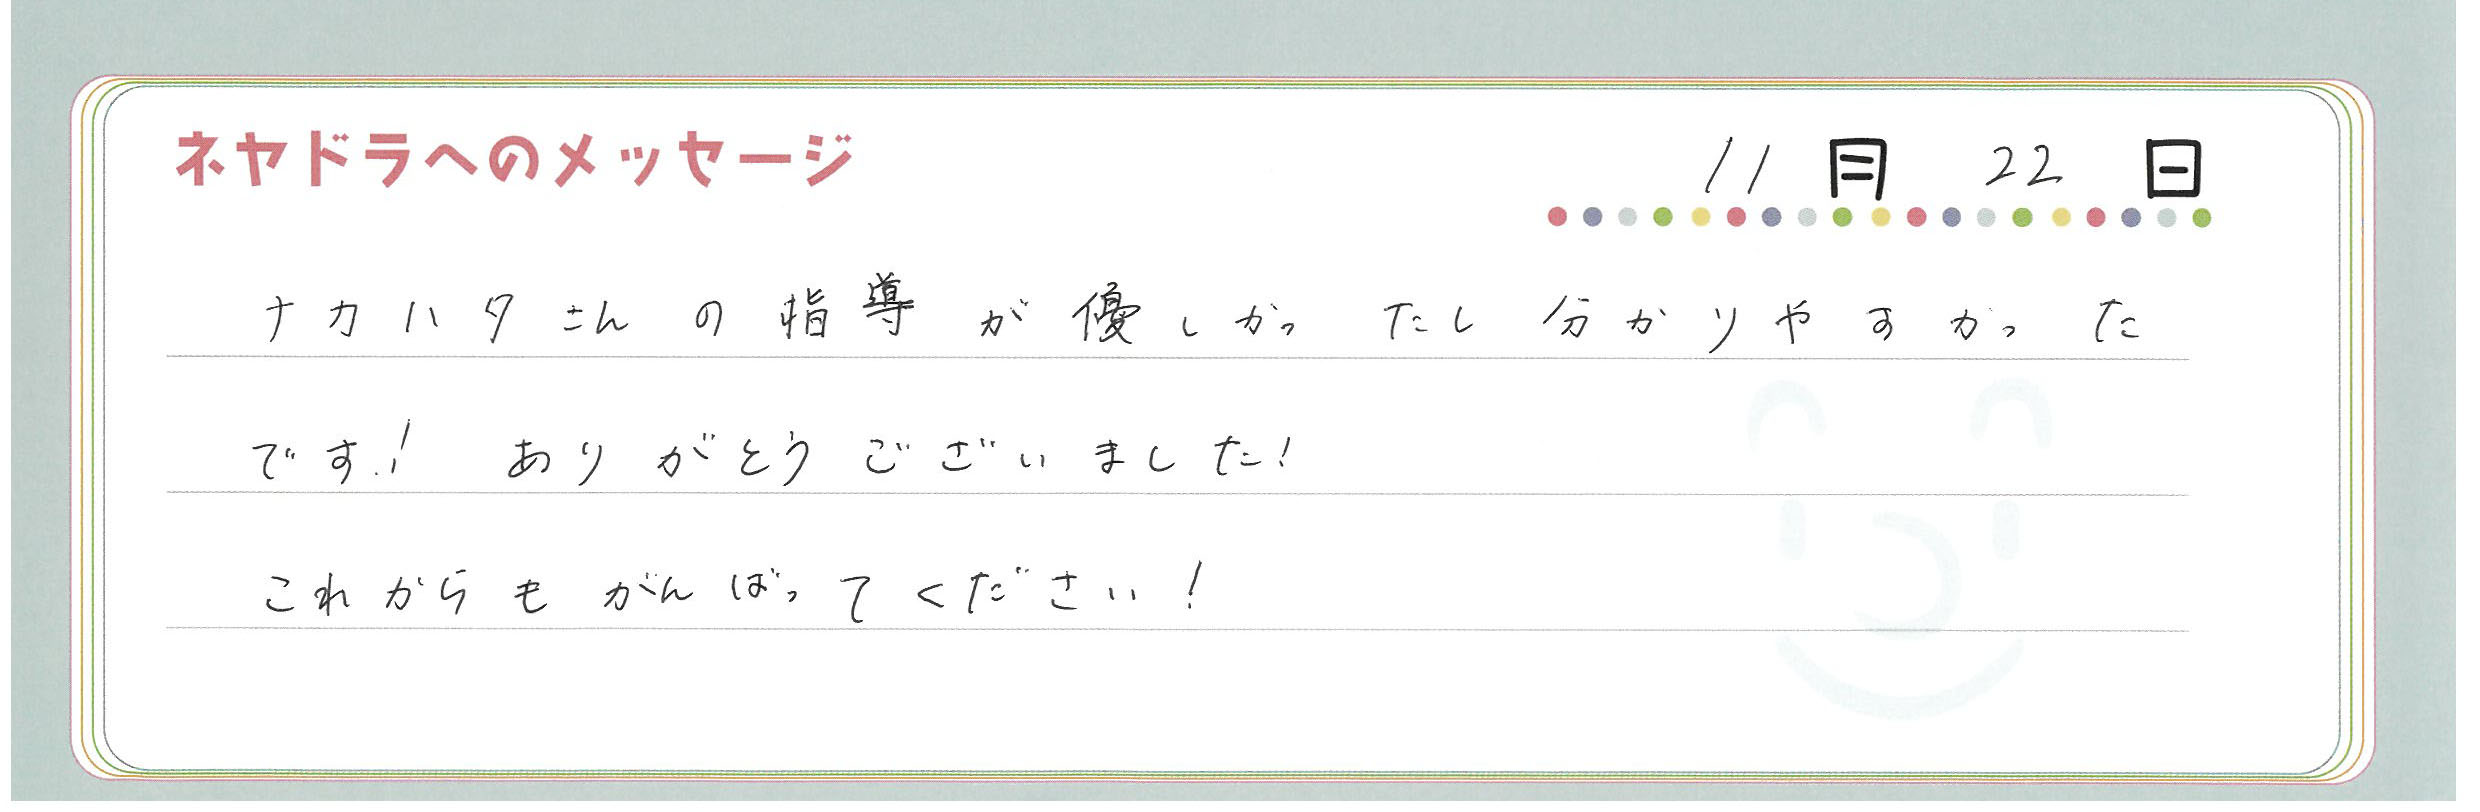 ネヤドラへのメッセージ 11月 22日
ナカハタさんの指導が優しかったし分かりやすかった
です! ありがとうございました!
これからもがんばってください!